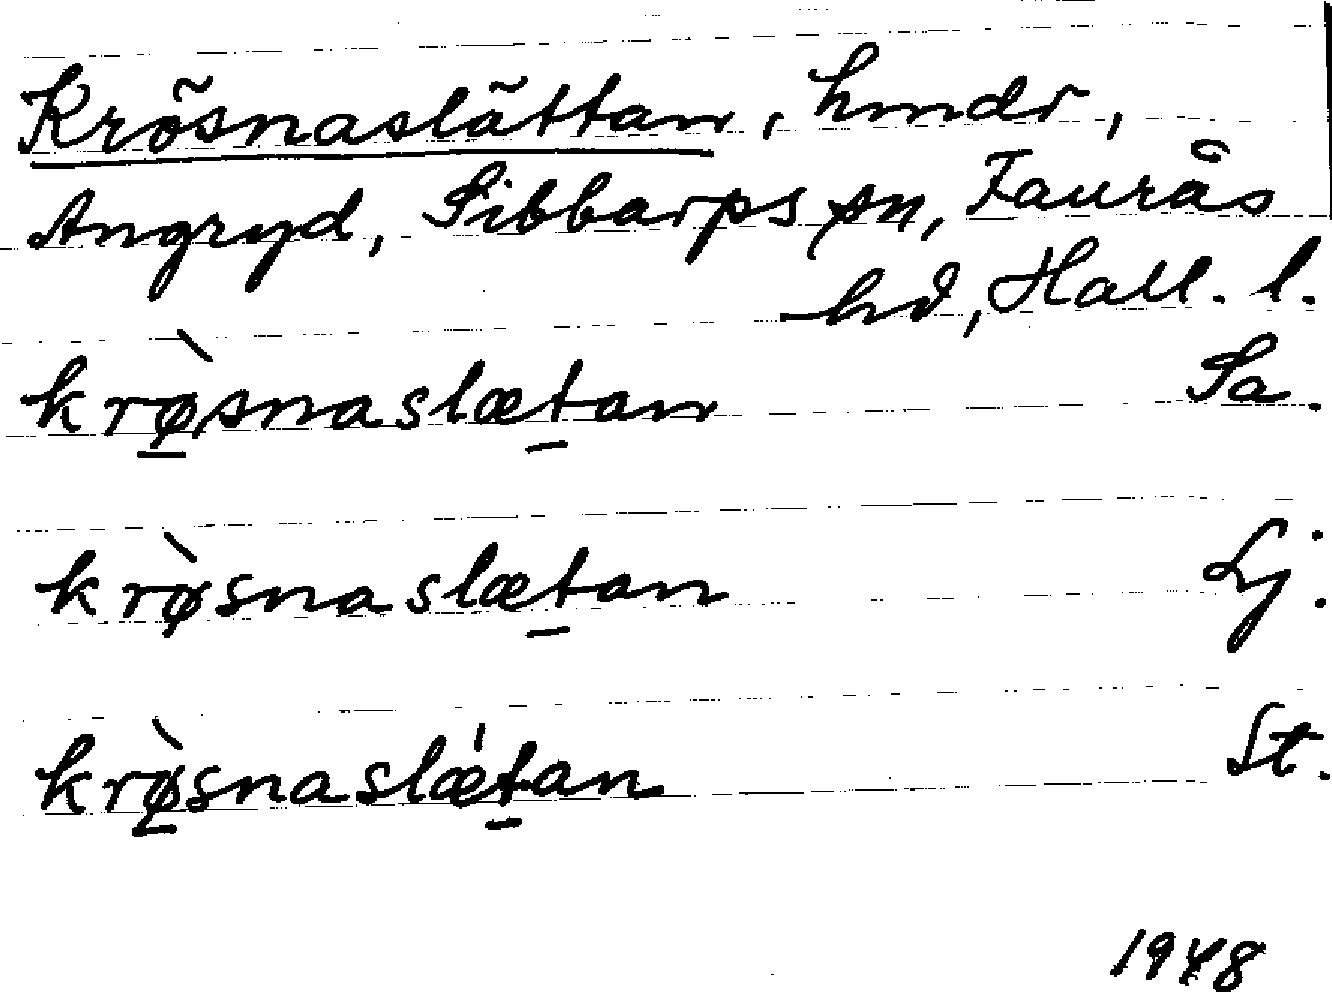 Krösnaslättan, hmdr,
Angryd, Sibbarps sn, Faurås
hd, Hall. l.
krø̀snaslætan Sa.
krø̀snaslætan Lj.
krø̀snaslæ̍tan St.
1948